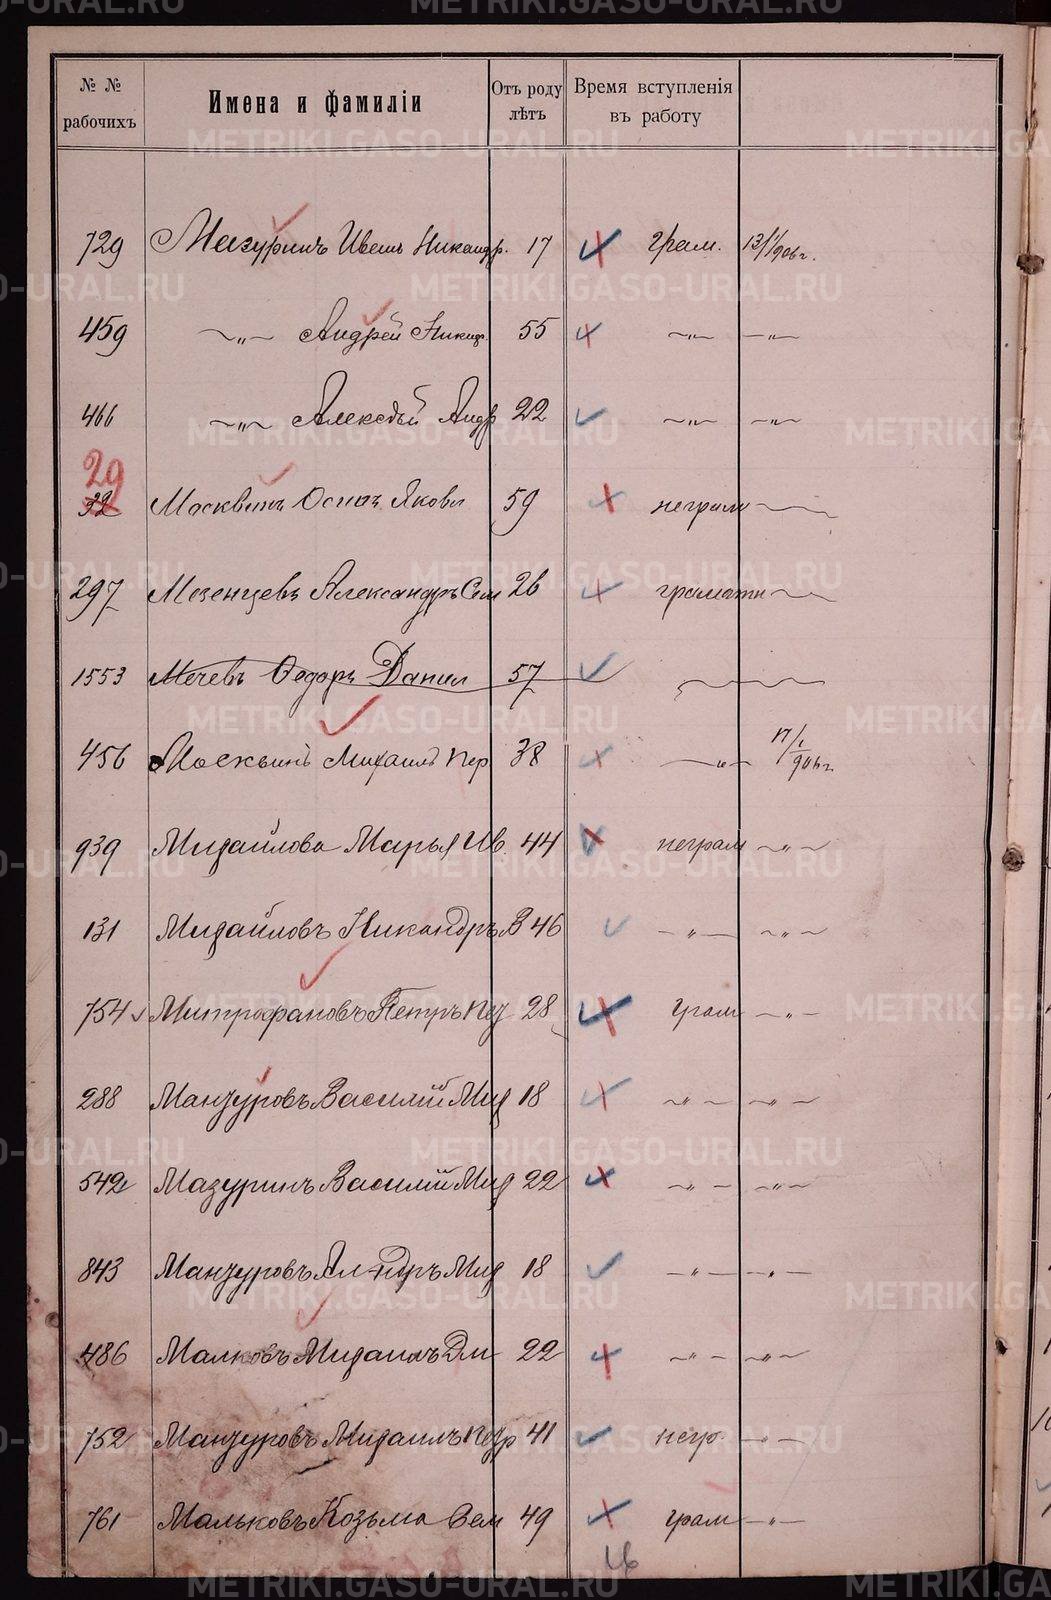 № № рабочихъ | Имена и фамиліи | Отъ роду лѣтъ | Время вступленія въ работу
729 Мазуринъ Иванъ Никандр. 17 грам. 13/1 906 г.
459 —„— Андрей Никандр. 55 —„— —„—
466 —„— Алексѣй Андр 22 —„— —„—
29
32 Москвинъ Осипъ Яковл 59 неграм
297 Мезенцевъ Александръ Сем 26 граматн
1553 Мечевъ Ѳедоръ Данил 57
456 Москвинъ Михаилъ Пер 38 —„— 17/1 906 г.
939 Михайлова Марья Ив. 44 неграм —„—
131 Михайловъ Никандръ В 46 —„— —„—
754 Митрофановъ Петръ 28 грам —„—
288 Манзуровъ Василій Мих 18 —„— —„—
542 Мазуринъ Василій Мих 22 —„— —„—
843 Манзуровъ Ал-ндръ Мих 18 —„— —„—
486 Малковъ Михаилъ Дм 22 —„— —„—
752 Манзуровъ Михаилъ Петр 41 негр. —„—
761 Мальковъ Козьма Сем 49 грам —„—
16
METRIKI.GASO-URAL.RU